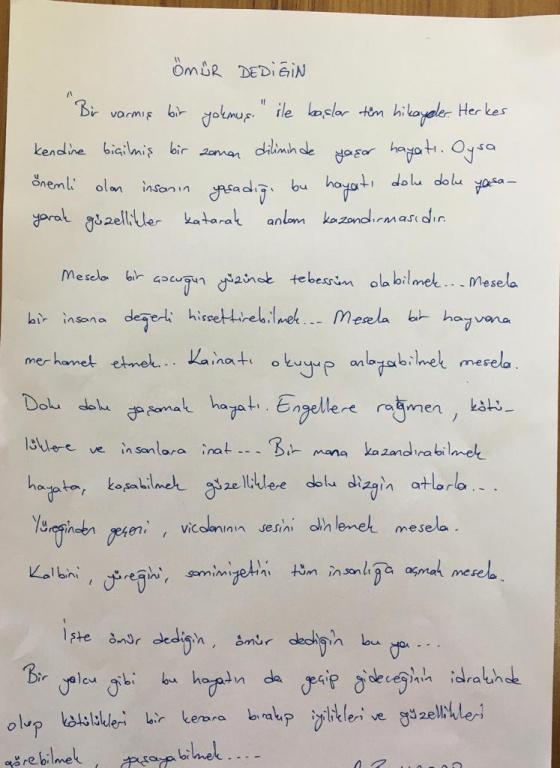 ÖMÜR DEDİĞİN
"Bir varmış bir yokmuş." ile başlar tüm hikayeler. Herkes
kendine biçilmiş bir zaman diliminde yaşar hayatı. Oysa
önemli olan insanın yaşadığı bu hayatı dolu dolu yaşa-
yarak güzellikler katarak anlam kazandırmasıdır.
Mesela bir çocuğun yüzünde tebessüm olabilmek... Mesela
bir insana değerli hissettirebilmek... Mesela bir hayvana
merhamet etmek... Kainatı okuyup anlayabilmek mesela.
Dolu dolu yaşamak hayatı. Engellere rağmen, kötü-
lüklere ve insanlara inat... Bir mana kazandırabilmek
hayata, koşabilmek güzelliklere dolu dizgin atlarla...
Yüreğinden geçeni, vicdanının sesini dinlemek mesela.
Kalbini, yüreğini, samimiyetini tüm insanlığa açmak mesela.
İşte ömür dediğin, ömür dediğin bu ya...
Bir yolcu gibi bu hayatın da geçip gideceğinin idrakinde
olup kötülükleri bir kenara bırakıp iyilikleri ve güzellikleri
görebilmek, yaşayabilmek....